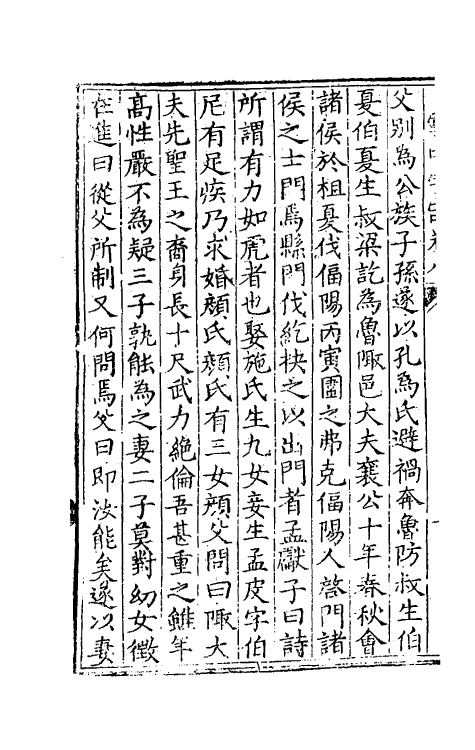 父别為公族子孫遂以孔為氏避禍奔魯防叔生伯
夏伯夏生叔梁訖為魯陬邑大夫襄公十年春秋會
諸侯於柤夏伐偪陽丙寅圍之弗克偪陽人啓門諸
侯之士門焉縣門伐紇抉之以出門者孟獻子曰詩
所謂有力如虎者也娶施氏生九女妾生孟皮字伯
尼有足疾乃求婚顔氏顔氏有三女顔父問曰陬大
夫先聖王之裔身長十尺武力絶倫吾甚重之雖年
髙性嚴不為疑三子孰能為之妻二子莫對幼女徵
在進曰從父所制又何問焉父曰即汝能矣遂以妻